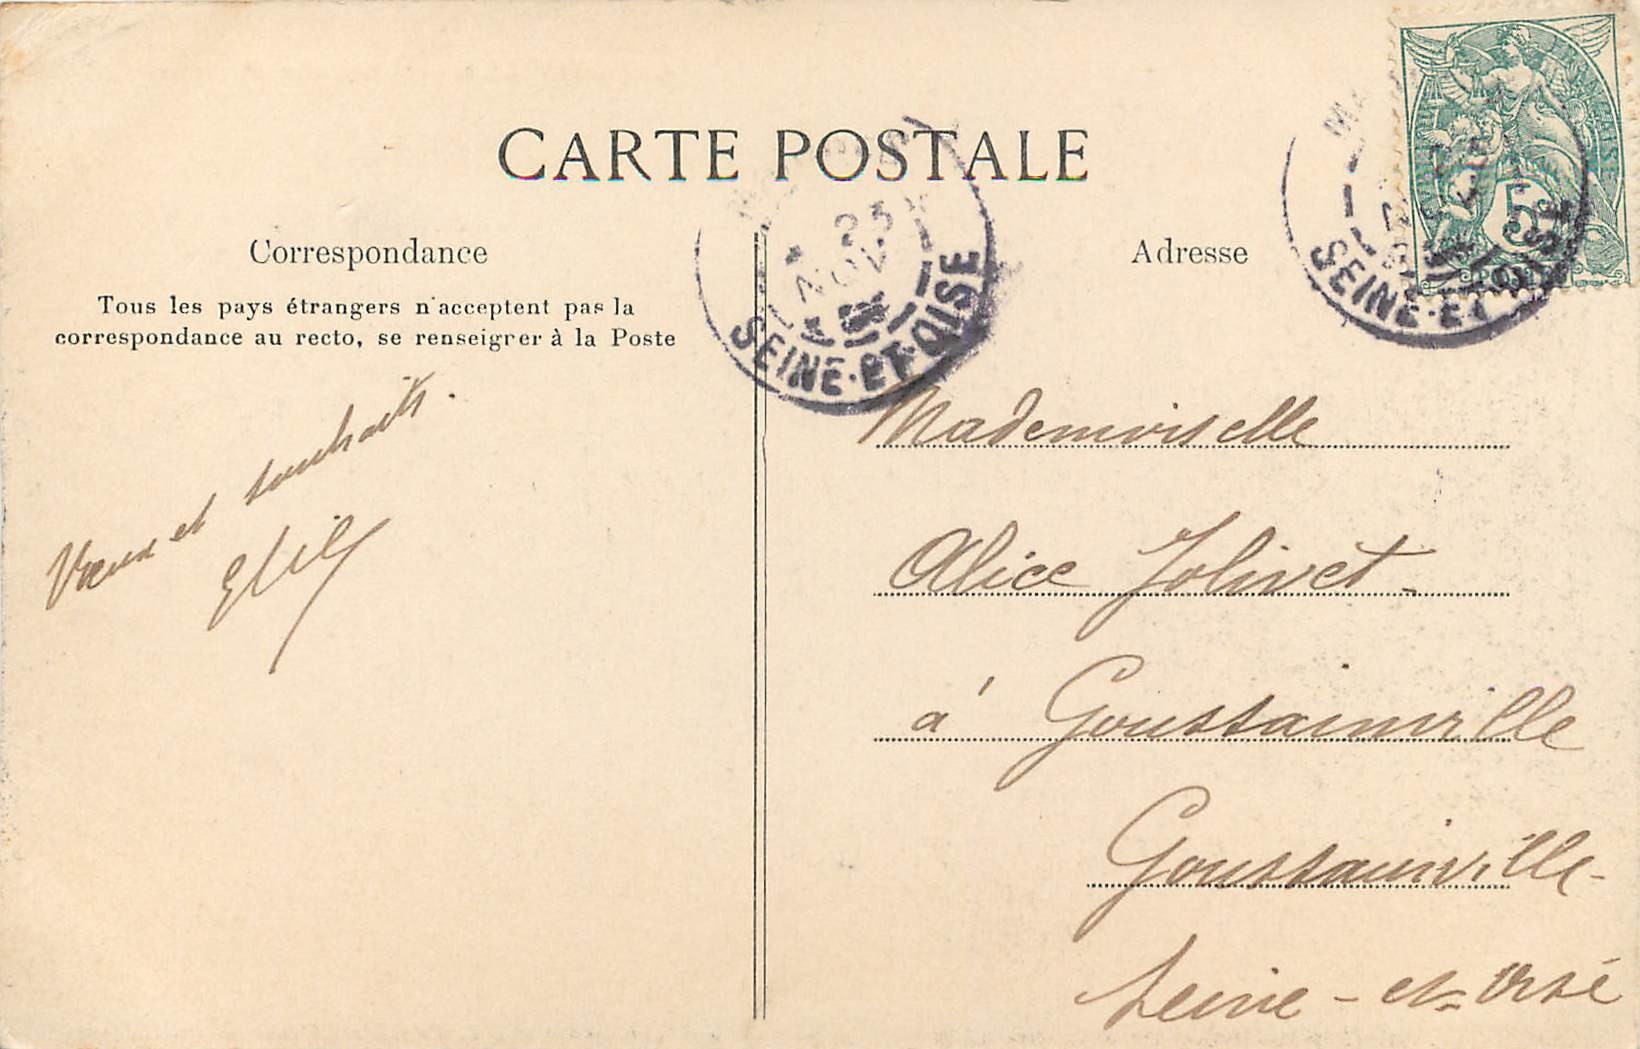 CARTE POSTALE
Correspondance
Tous les pays étrangers n'acceptent pas la
correspondance au recto, se renseigner à la Poste
Vœux et souhaits.
Adresse
23
NOV
SEINE-ET-OISE
SEINE-ET-OISE
5
Mademoiselle
Alice Jolivet-
à Goussainville
Goussainville-
Seine-et-Oise